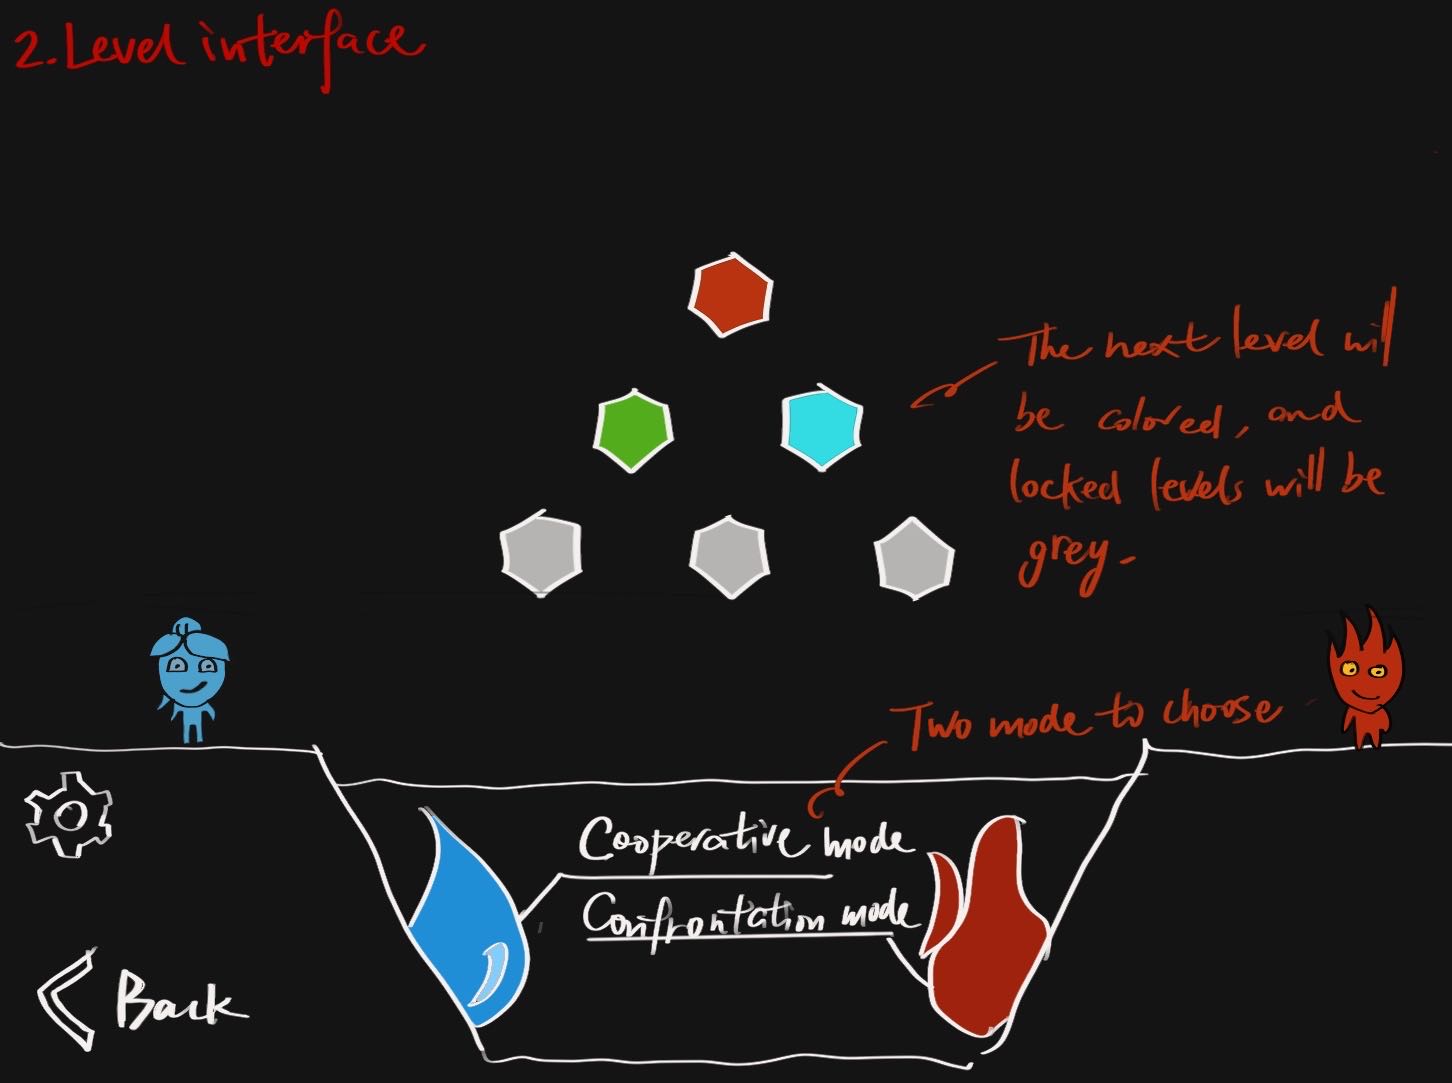 2. Level interface
The next level will
be colored, and
locked levels will be
grey.
Two mode to choose
Cooperative mode
Confrontation mode
Back